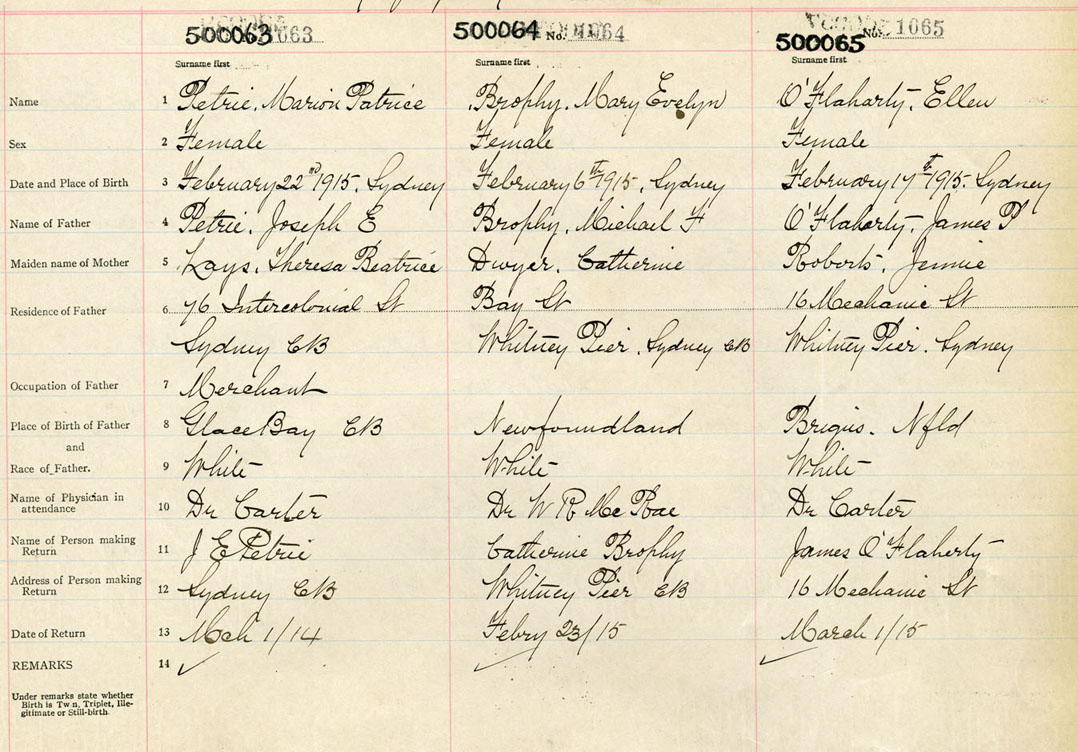 500063 1063 500064 No. 1064 500065 No. 1065
Surname first Surname first Surname first
Name 1 Petrie, Marion Patrice Brophy, Mary Evelyn O'Flaharty, Ellen
Sex 2 Female Female Female
Date and Place of Birth 3 February 22nd 1915, Sydney February 6th 1915, Sydney February 17th 1915, Sydney
Name of Father 4 Petrie, Joseph E Brophy, Michael F O'Flaharty, James P
Maiden name of Mother 5 Lays, Theresa Beatrice Dwyer, Catherine Roberts, Jennie
Residence of Father 6 76 Intercolonial St Bay St 16 Mechanic St
Sydney CB Whitney Pier, Sydney CB Whitney Pier, Sydney
Occupation of Father 7 Merchant
Place of Birth of Father 8 Glace Bay CB Newfoundland Brigus, Nfld
and
Race of Father. 9 White White White
Name of Physician in attendance 10 Dr Carter Dr W R McRae Dr Carter
Name of Person making Return 11 J E Petrie Catherine Brophy James O'Flaherty
Address of Person making Return 12 Sydney CB Whitney Pier CB 16 Mechanic St
Date of Return 13 Mch 1/14 Febry 23/15 March 1/15
REMARKS 14
Under remarks state whether
Birth is Twin, Triplet, Ille-
gitimate or Still-birth.